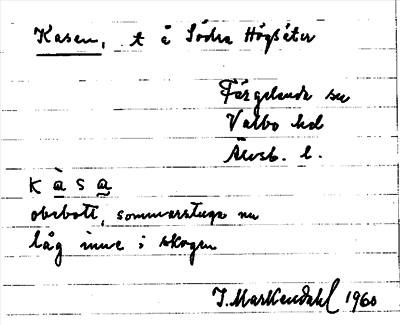 Kasen, t å Södra Högsäter
Färgelanda sn
Valbo hd
Älvsb. l.
k à s a
obebott, sommarstuga nu
låg inne i skogen
I. Markendahl 1960